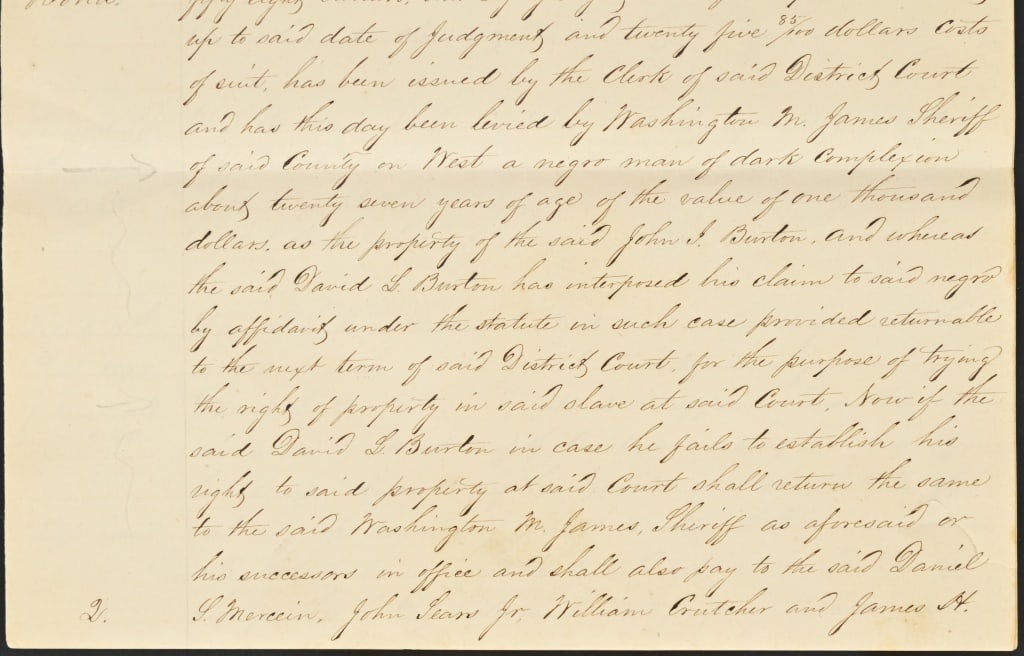 up to said date of Judgment, and twenty five 85/100 dollars costs
of suit, has been issued by the Clerk of said District Court
and has this day been levied by Washington M. James Sheriff
of said County on West a negro man of dark complexion
about twenty seven years of age of the value of one thousand
dollars, as the property of the said John I. Burton, and whereas
the said David L. Burton has interposed his claim to said negro
by affidavit, under the statute in such case provided returnable
to the next term of said District Court, for the purpose of trying
the right of property in said slave at said Court. Now if the
said David L. Burton in case he fails to establish his
right to said property at said Court shall return the same
to the said Washington M. James, Sheriff as aforesaid or
his successors in office and shall also pay to the said Daniel
2. S. Mercein, John Sears Jr, William Crutcher and James H.